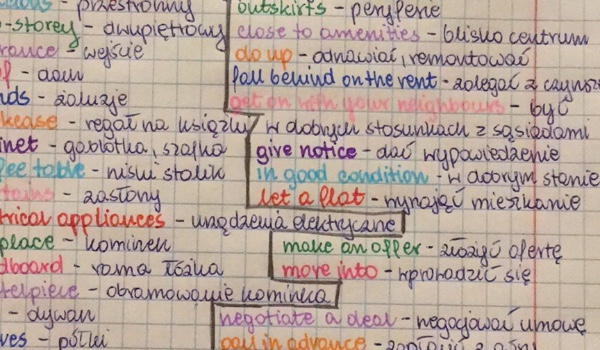 przestronny
-storey - dwupiętrowy
- wejście
- dom
- żaluzje
- regał na książki
inet - gablotka, szafka
ee table - niski stolik
- zasłony
trical appliances - urządzenia elektryczne
place - kominek
dboard - rama łóżka
telpiece - obramowanie kominka
- dywan
ves - półki
outskirts - peryferie
close to amenities - blisko centrum
do up - odnawiać, remontować
fall behind on the rent - zalegać z czynsz
get on with your neighbours - być
w dobrych stosunkach z sąsiadami
give notice - dać wypowiedzenie
in good condition - w dobrym stanie
let a flat - wynająć mieszkanie
make an offer - złożyć ofertę
move into - wprowadzić się
negotiate a deal - negocjować umowę
pay in advance - zapłacić z